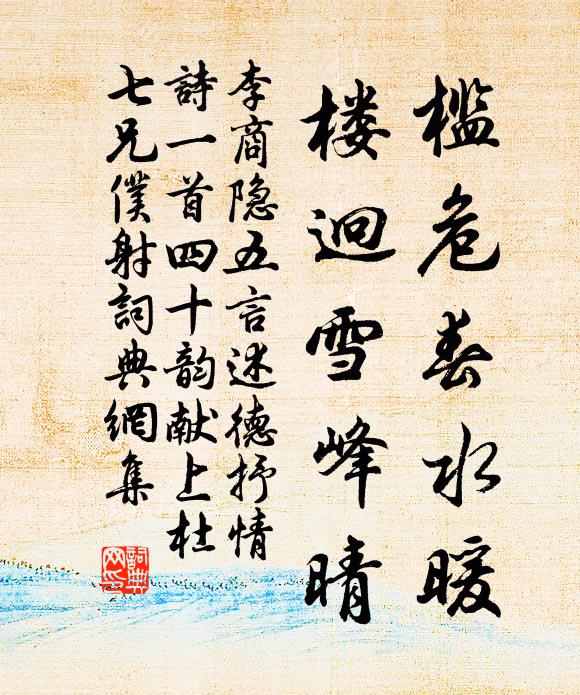 槛危春水暖
楼迥雪峰晴
李商隐五言述德抒情
詩一首四十韵献上杜
七兄僕射詞典網集